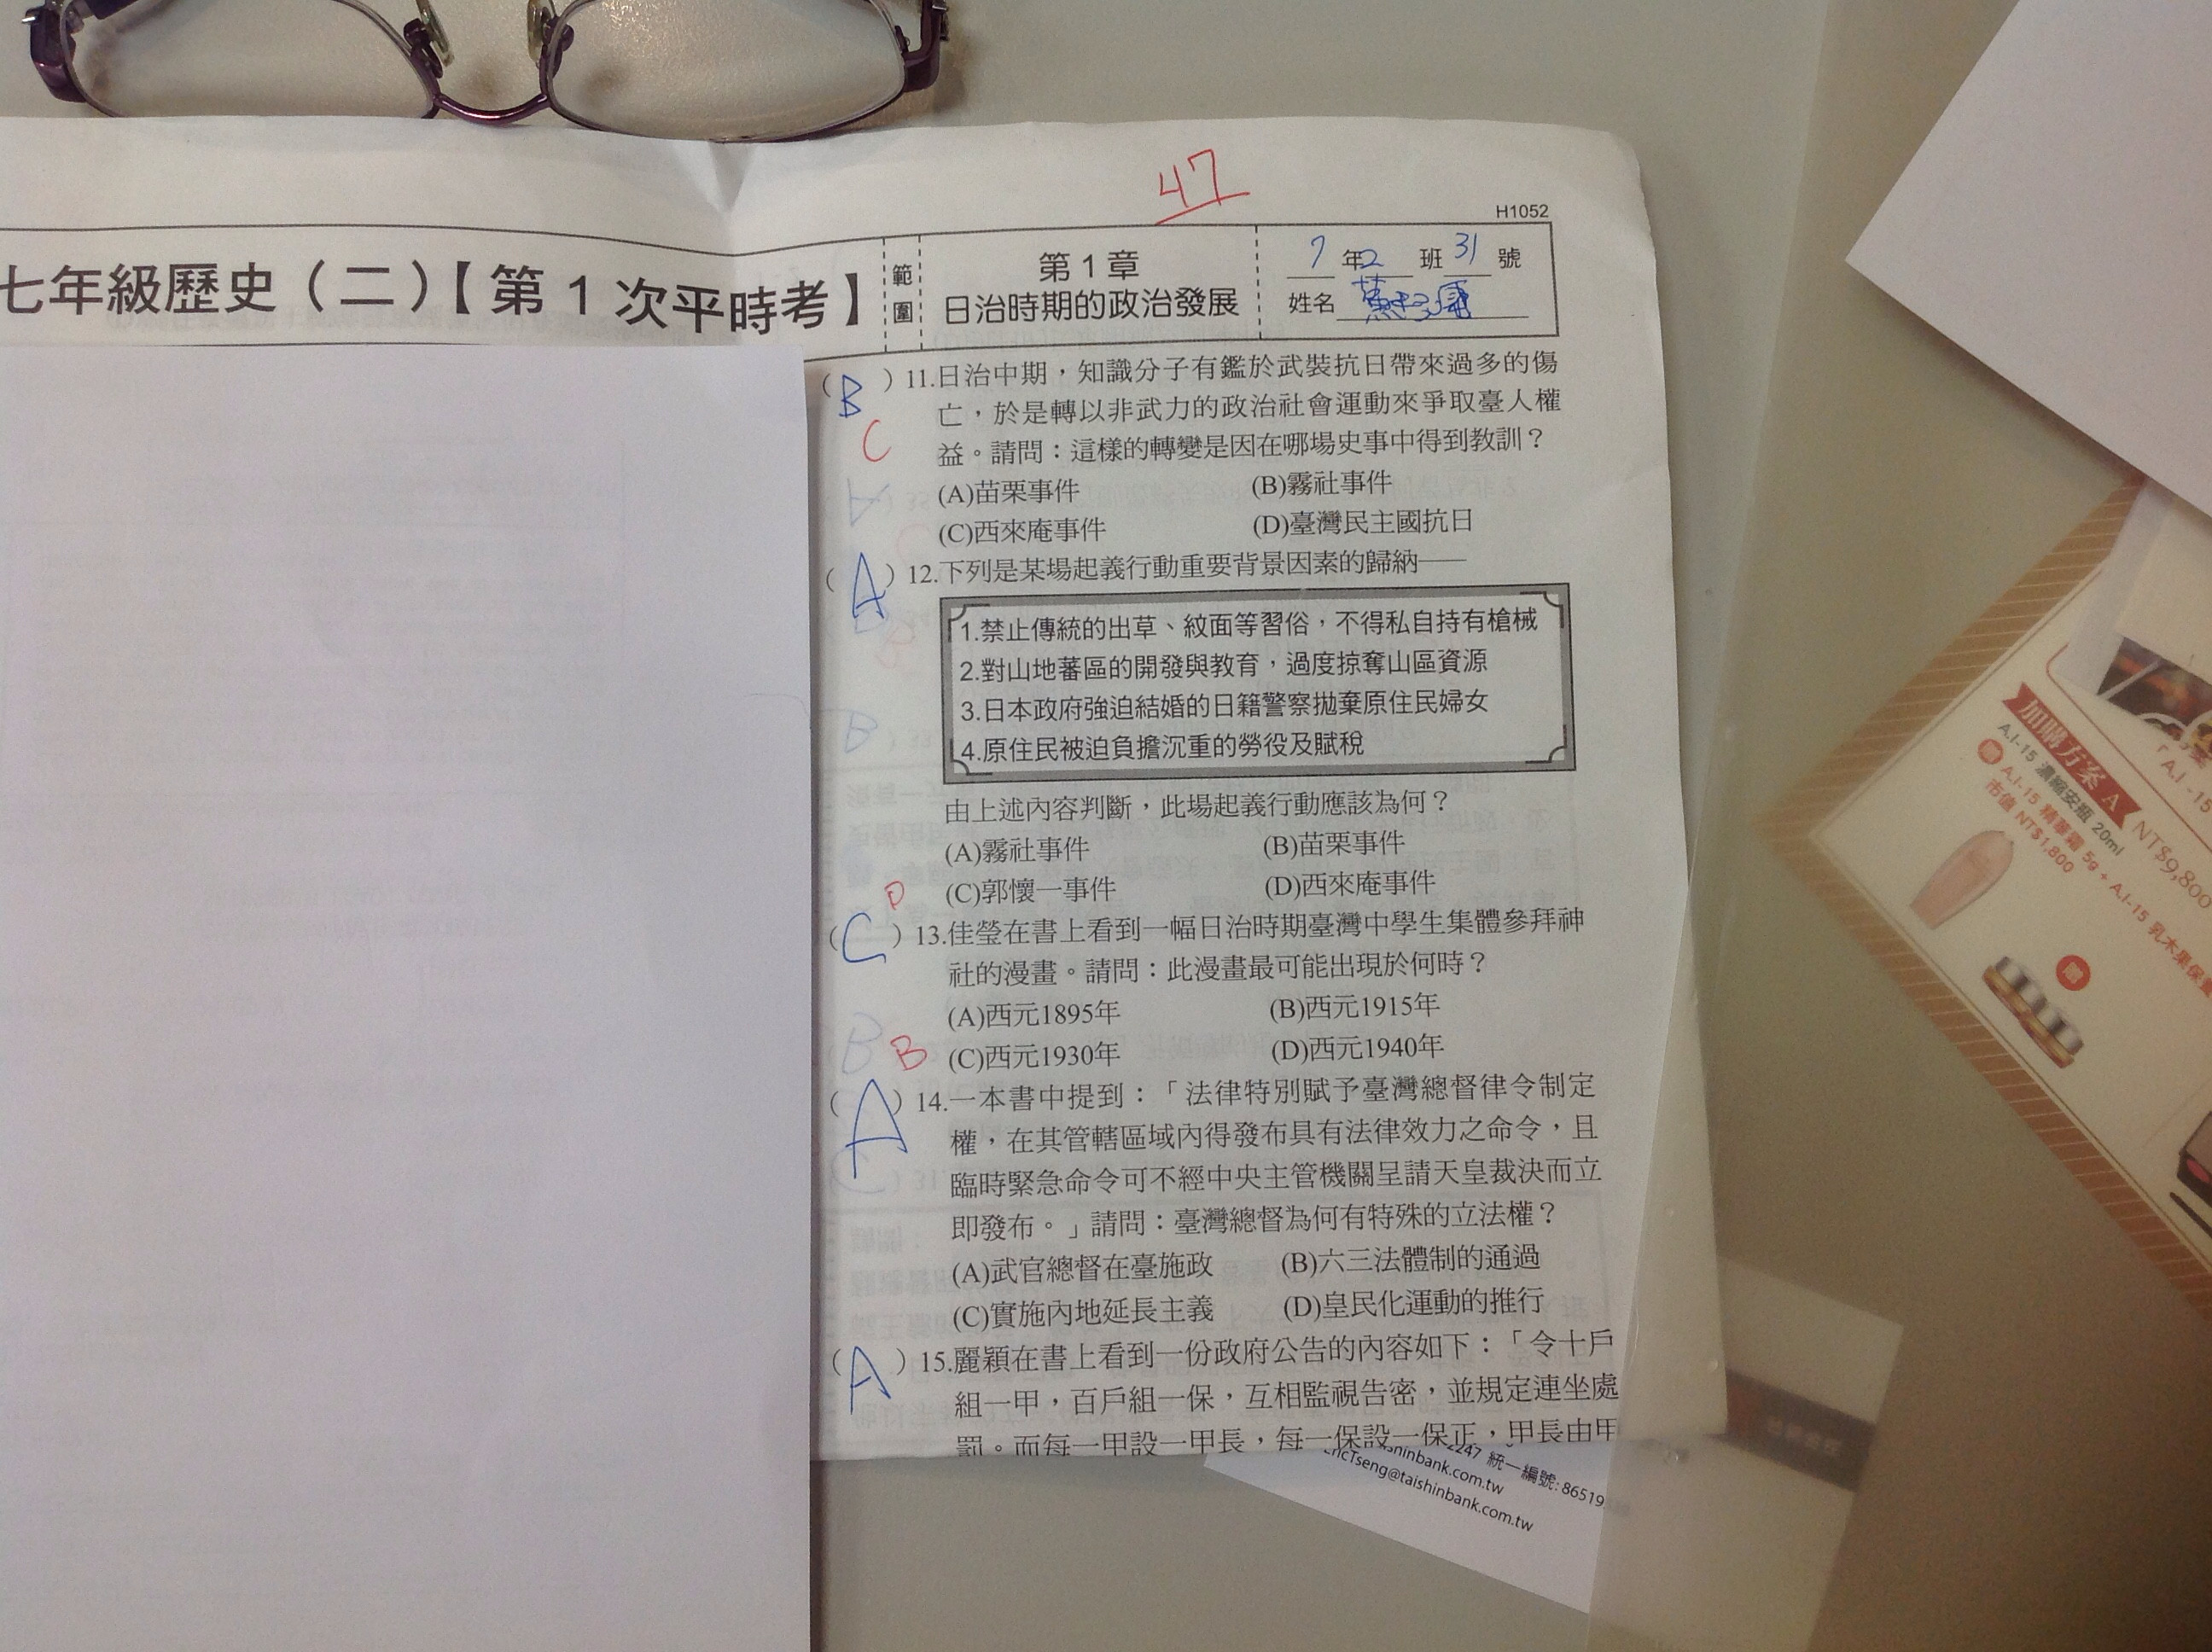 47
H1052
七年級歷史（二）【第1次平時考】
範圍
第1章
日治時期的政治發展
7年2班31號
姓名
(B)11.日治中期，知識分子有鑑於武裝抗日帶來過多的傷
亡，於是轉以非武力的政治社會運動來爭取臺人權
C
益。請問：這樣的轉變是因在哪場史事中得到教訓？
(A)苗栗事件 (B)霧社事件
(C)西來庵事件 (D)臺灣民主國抗日
(A)12.下列是某場起義行動重要背景因素的歸納——
1.禁止傳統的出草、紋面等習俗，不得私自持有槍械
2.對山地蕃區的開發與教育，過度掠奪山區資源
3.日本政府強迫結婚的日籍警察拋棄原住民婦女
4.原住民被迫負擔沉重的勞役及賦稅
由上述內容判斷，此場起義行動應該為何？
(A)霧社事件 (B)苗栗事件
(C)郭懷一事件 (D)西來庵事件
D
(C)13.佳瑩在書上看到一幅日治時期臺灣中學生集體參拜神
社的漫畫。請問：此漫畫最可能出現於何時？
(A)西元1895年 (B)西元1915年
(C)西元1930年 (D)西元1940年
B
(A)14.一本書中提到：「法律特別賦予臺灣總督律令制定
權，在其管轄區域內得發布具有法律效力之命令，且
臨時緊急命令可不經中央主管機關呈請天皇裁決而立
即發布。」請問：臺灣總督為何有特殊的立法權？
(A)武官總督在臺施政 (B)六三法體制的通過
(C)實施內地延長主義 (D)皇民化運動的推行
(A)15.麗穎在書上看到一份政府公告的內容如下：「令十戶
組一甲，百戶組一保，互相監視告密，並規定連坐處
罰。而每一甲設一甲長，每一保設一保正，甲長由甲
2247 統一編號:86519
ninbank.com.tw
ricTseng@taishinbank.com.tw
加購方案 A
A.I-15 濃縮安瓶 20ml NT$9,800
贈 A.I-15 精華霜 5g + A.I-15 乳木果保
市值 NT$1,800
「A.I-15
贈